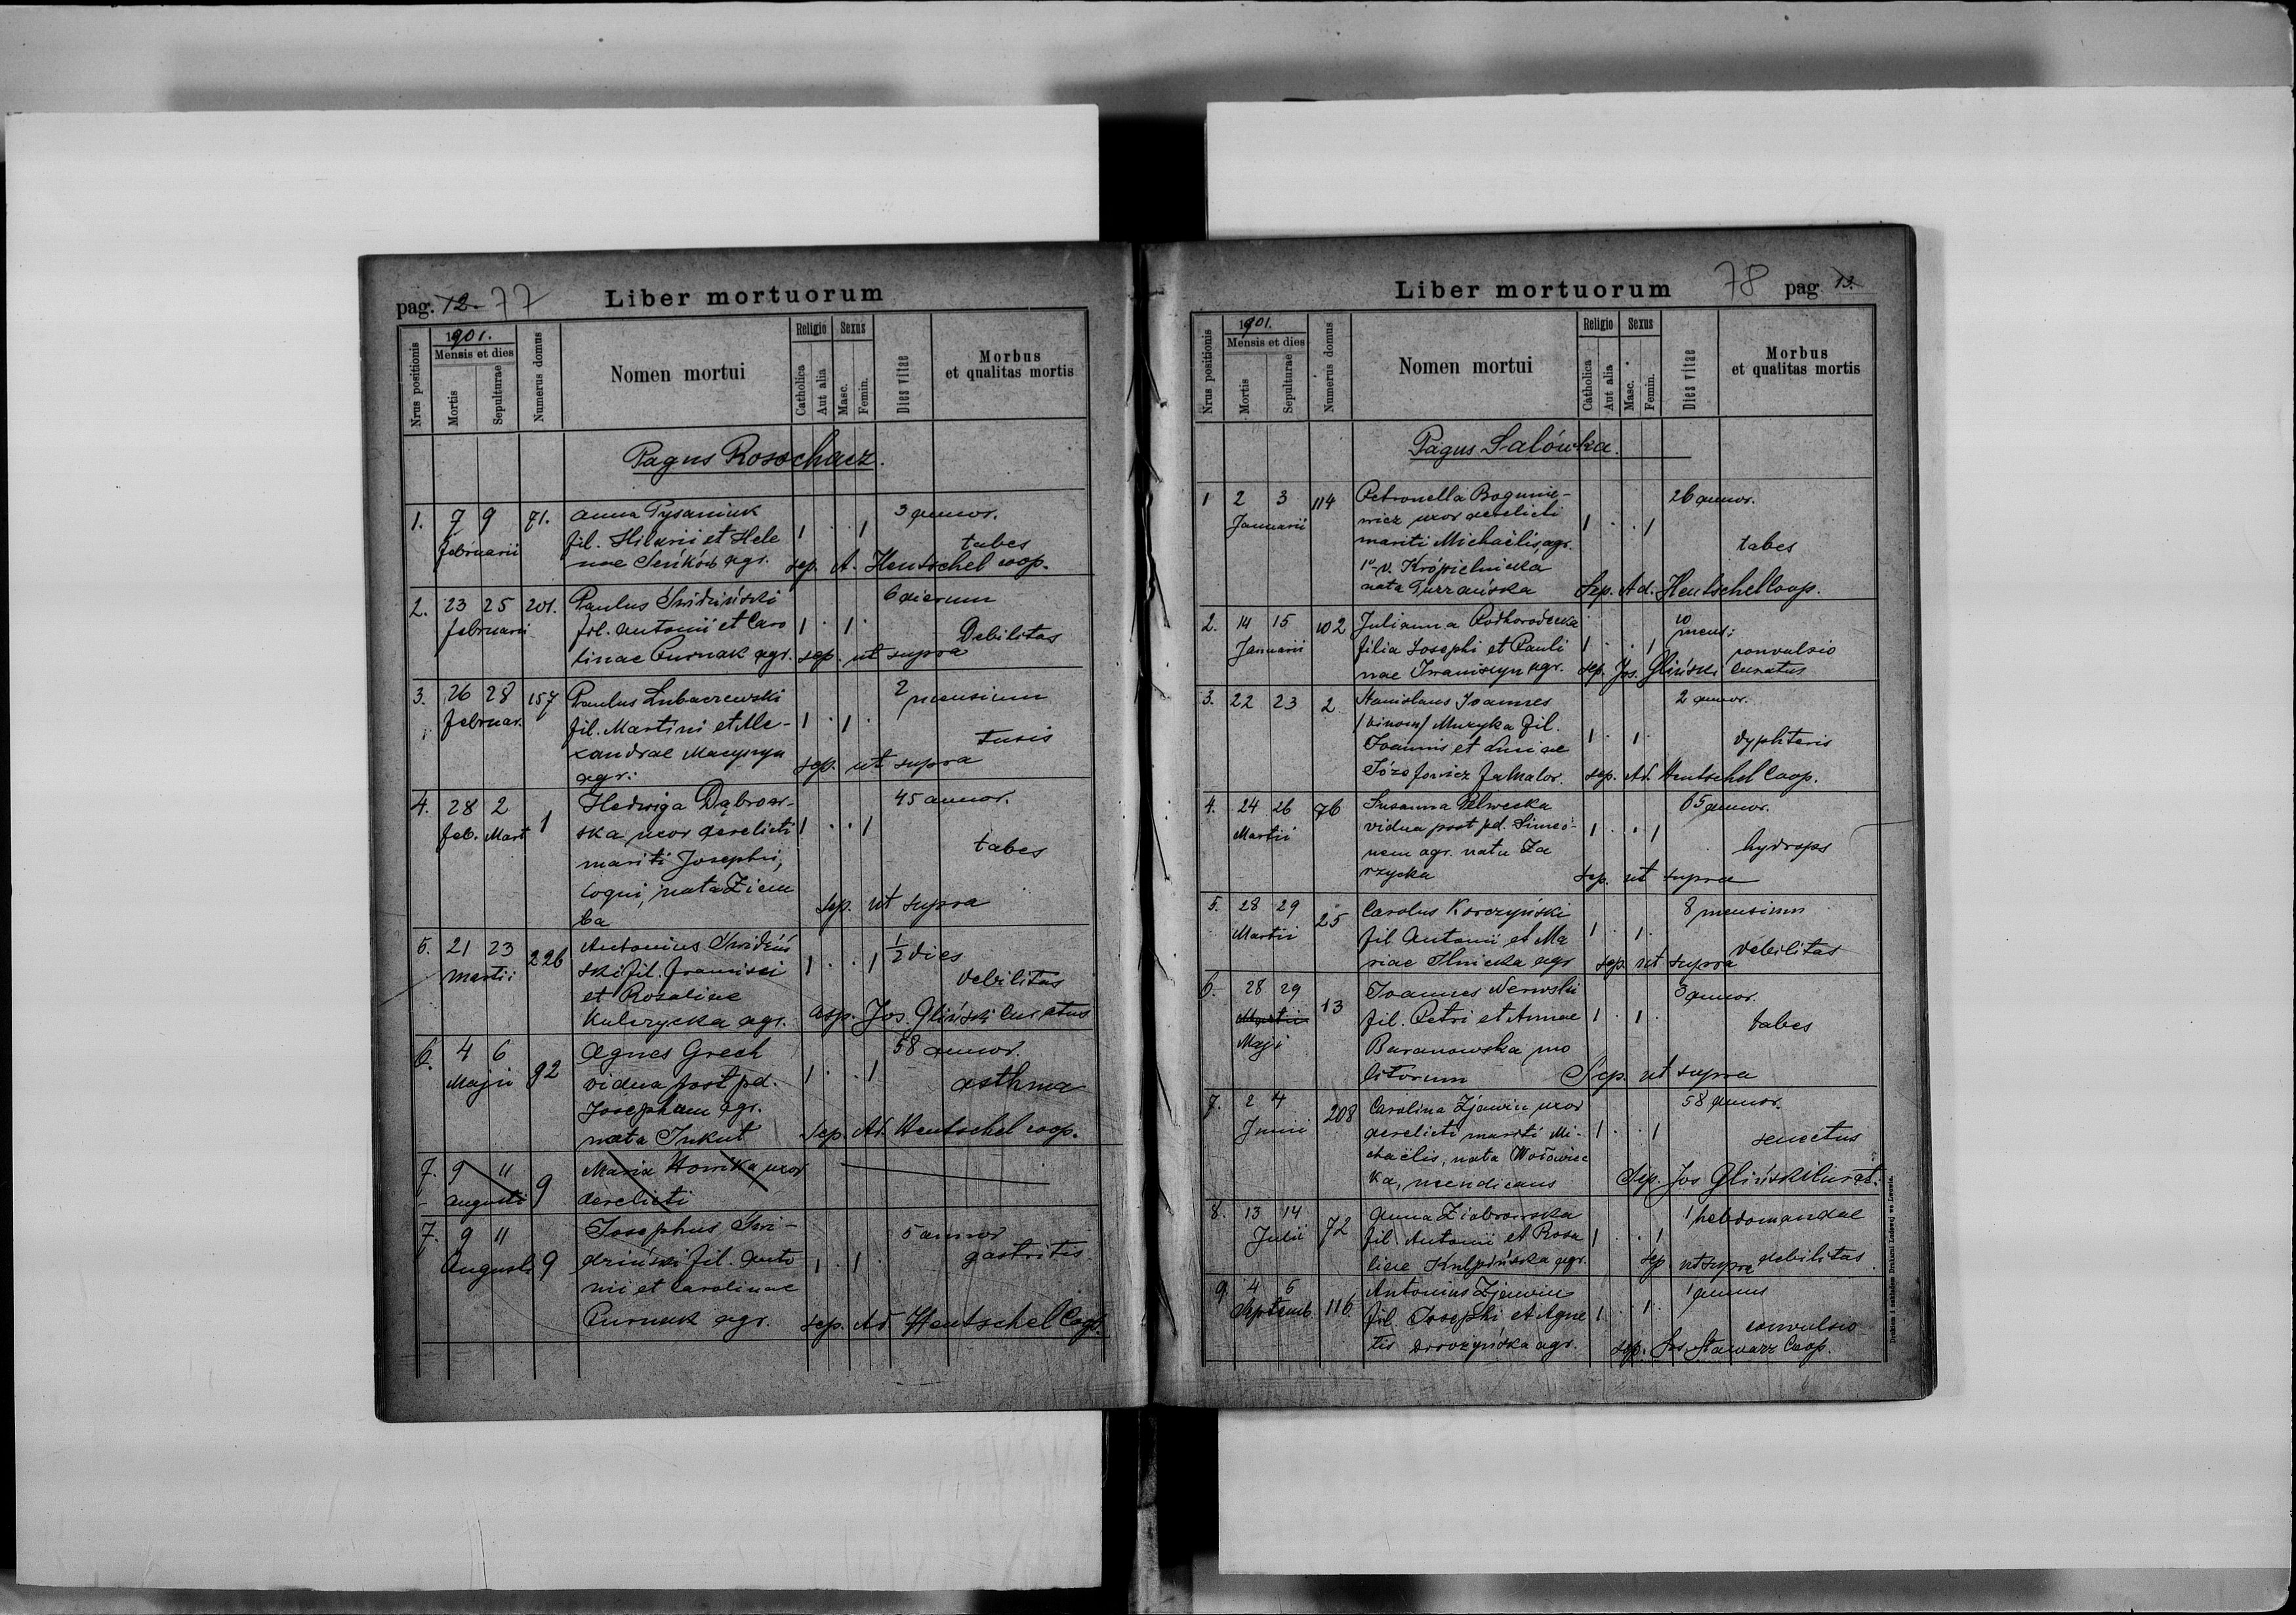 pag. 12. 77
Liber mortuorum
Nrus positionis
1901.
Mensis et dies
Mortis
Sepulturae
Numerus domus
Nomen mortui
Religio
Catholica
Aut alia
Sexus
Masc.
Femin.
Dies vitae
Morbus
et qualitas mortis
Pagus Rosochacz.
1. 7 9 71. Anna Pysaniuk 3 annor.
Februarii fil. Hilarii et Hele 1 . . 1 tabes
nae Seńków agr. sep. A. Hentschel coop.
2. 23 25 201. Paulus Świdziński 6 dierum
Februarii fil. Antonii et Caro 1 . 1 . Debilitas
linae Purnak agr. sep. ut supra
3. 26 28 157 Paulus Lubaczewski 2 mensium
Februar. fil. Martini et Ale- 1 . 1 . tusis
xandrae sep. ut supra
agr.
4. 28 2 1 Hedwiga Dąbrow- 45 annor.
Feb. Mart ska uxor derelicti 1 . . 1
mariti Josephi, tabes
coqui, nata Ziem
ba sep. ut supra
5. 21 23 226 Antonius Świdziń 1/2 dies
Martii ski fil. Francisci 1 . . 1 debilitas
et Rosaliae
Kulczycka agr. Jos. Gliński Curatus
6. 4 6 92 Agnes Grech 58 annor.
Maji vidua post pd. 1 . . 1 asthma
Josephum agr.
nata Inkut Sep. Ad. Hentschel coop.
7. 9 11 9 Maria uxor
Augusti derelicti
7. 9 11 Josephus Świ- 5 annor
Augusti 9 dziński fil. Anto 1 . 1 . gastritis
nii et Carolinae
Purnak agr. sep. Ad. Hentschel Coop.
Liber mortuorum
78 pag 13.
Nrus positionis
1901.
Mensis et dies
Mortis
Sepulturae
Numerus domus
Nomen mortui
Religio
Catholica
Aut alia
Sexus
Masc.
Femin.
Dies vitae
Morbus
et qualitas mortis
Pagus Salówka.
1 2 3 114 Petronella Bogunie- 26 annor.
Januarii wicz uxor derelicti 1 . . 1
mariti Michaëlis, agr. tabes
1o v. Krópielnicka
nata Sep. Ad. Hentschel Coop.
2. 14 15 102 Julianna Podhorodecka 10 mens:
Januarii filia Josephi et Pauli 1 . . 1 convulsio
nae Iwaniszyn agr. sep. Jos. Gliński Curatus
3. 22 23 2 Stanislaus Joannes 2 annor.
/binom/ Muzyka fil. 1 . 1 . dyphteris
Joannis et
Józefowicz sep. Ad. Hentschel Coop.
4. 24 26 76 Susanna 65 annor.
Martii vidua post pd. Simeo- 1 . . 1 hydrops
nem agr. nata Za
rzycka sep. ut supra
5. 28 29 25 Carolus Korczyński 8 mensium
Martii fil. Antonii et Ma 1 . 1 . debilitas
riae Ilnicka agr sep. ut supra
6. 28 29 13 Joannes 3 annor.
Martii fil. Petri et Annae 1 . 1 . tabes
Maji Baranowska mo
litorum Sep. ut supra
7. 2 4 208 Carolina Zjawin uxor 58 annor.
Junii derelicti mariti Mi- 1 . . 1 senectus
chaëlis, nata
ka, mendicans Sep. Jos Gliński Curat.
8. 13 14 72 Anna Ziobrowska 1 hebdomadae
Julii fil. Antonii et Rosa 1 . . 1
liae Kulpińska agr. sep. ut supra debilitas
9. 4 5 116 Antonius Zjawin 1 annus
Septemb. fil. Josephi et Agne 1 . 1 . convulsio
tis Drożyńska agr. sep. Jos. Stawarz Coop.
Drukiem i nakładem Drukarni Ludowej we Lwowie.